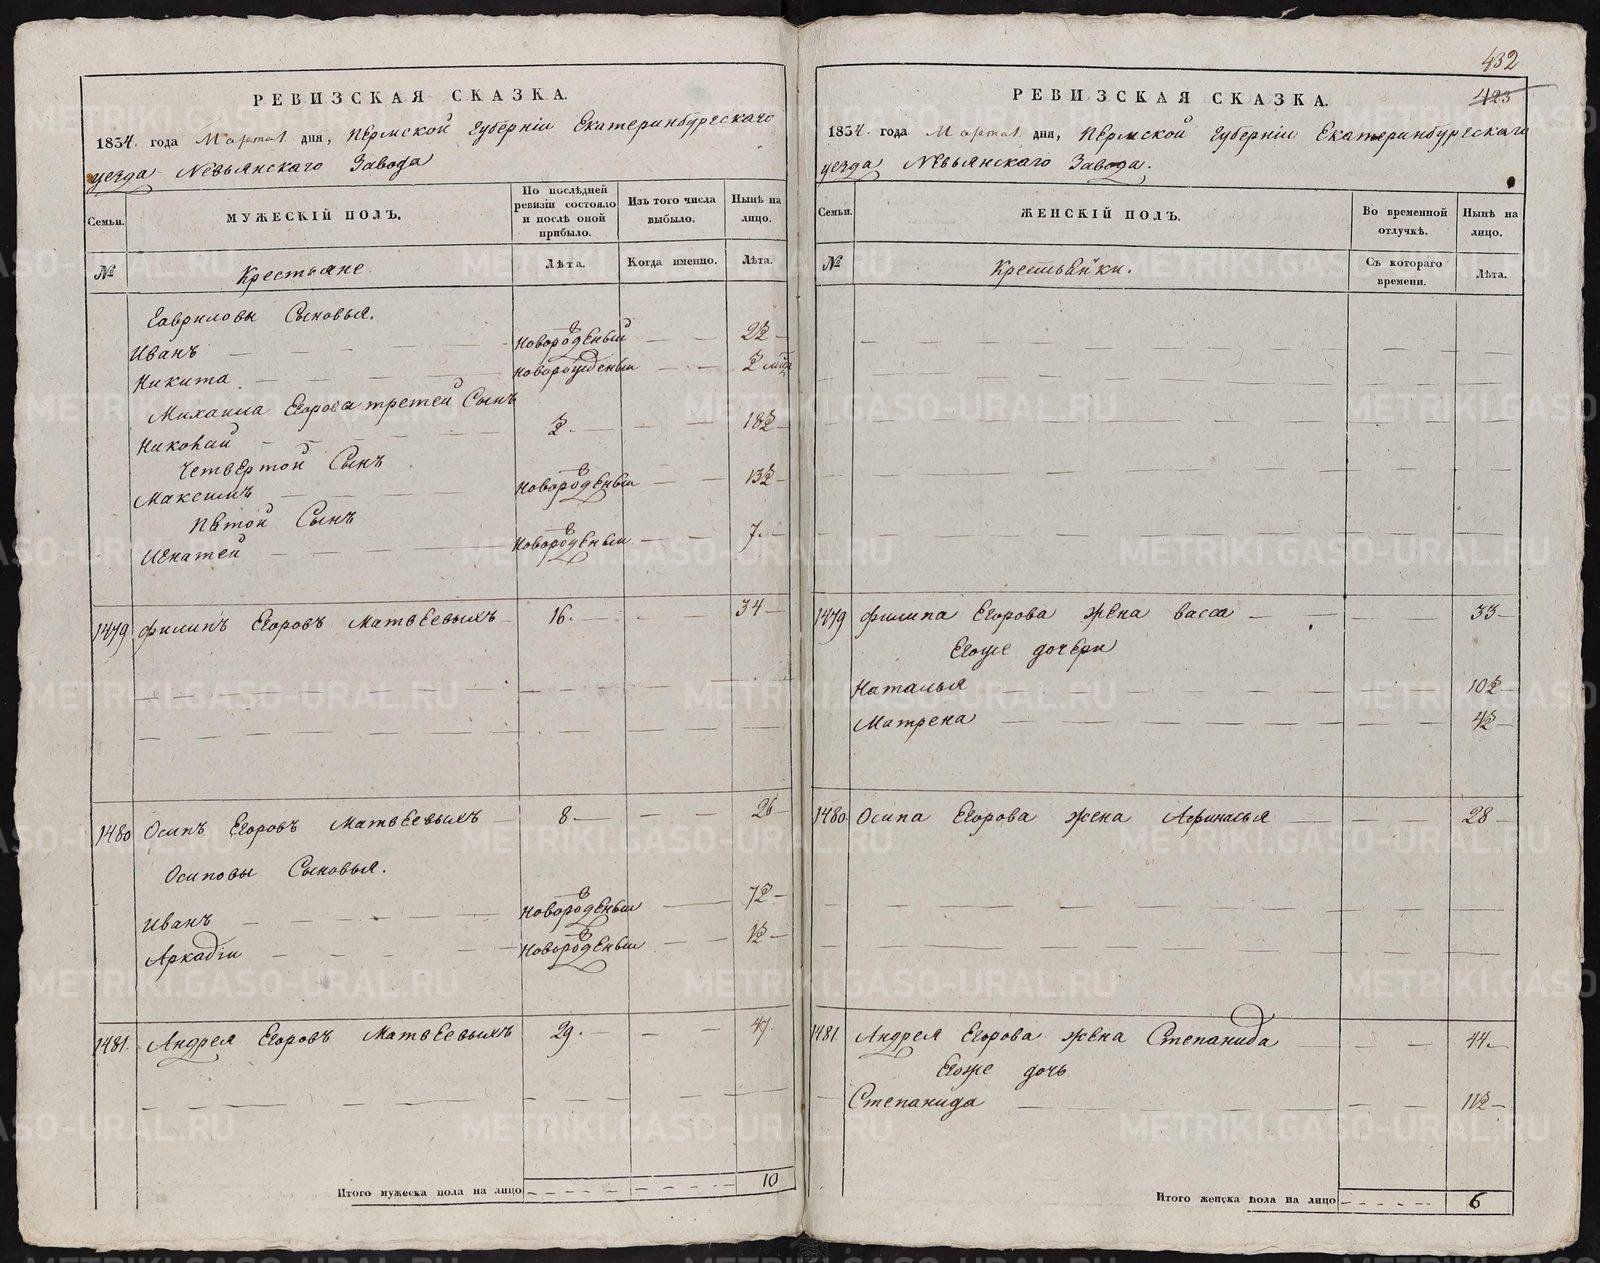 РЕВИЗСКАЯ СКАЗКА.
1834. года Марта 1. дня, Пермской Губерніи Екатеринбургскаго
уезда Невьянскаго Завода
Семьи.
МУЖЕСКІЙ ПОЛЪ.
По послѣдней
ревизіи состояло
и послѣ оной
прибыло.
Изъ того числа
выбыло.
Нынѣ на
лицо.
№
Крестьяне.
Лѣта.
Когда именно.
Лѣта.
Гавриловы Сыновья.
Иванъ новорожденый
Никита новорожденыи
Михаила Егорова третей Сынъ
Николай
Четвертой Сынъ
Максимъ новорожденыи
Пятой Сынъ
Игнатей новорожденыи 7.
1479 Филипъ Егоровъ Матвеевыхъ 16. 34
1480 Осипъ Егоровъ Матвеевыхъ 8 26
Осиповы Сыновья.
Иванъ новорожденыи
Аркадіи новорожденыи
1481. Андрея Егоровъ Матвеевыхъ 29. 47.
Итого мужеска пола на лицо 10
432
423
РЕВИЗСКАЯ СКАЗКА.
1834. года Марта 1. дня, Пермской Губерніи Екатеринбургскаго
уезда Невьянскаго Завода.
Семьи.
ЖЕНСКІЙ ПОЛЪ.
Во временной
отлучкѣ.
Нынѣ на
лицо.
№
Крестьянки.
Съ котораго
времени.
Лѣта.
1479 Филипа Егорова жена Васса 33
Егоже дочери
Наталья
Матрена
1480. Осипа Егорова жена 28
1481. Андрея Егорова жена Степанида 44
Егоже дочь
Степанида
Итого женска пола на лицо 6
METRIKI.GASO-URAL.RU